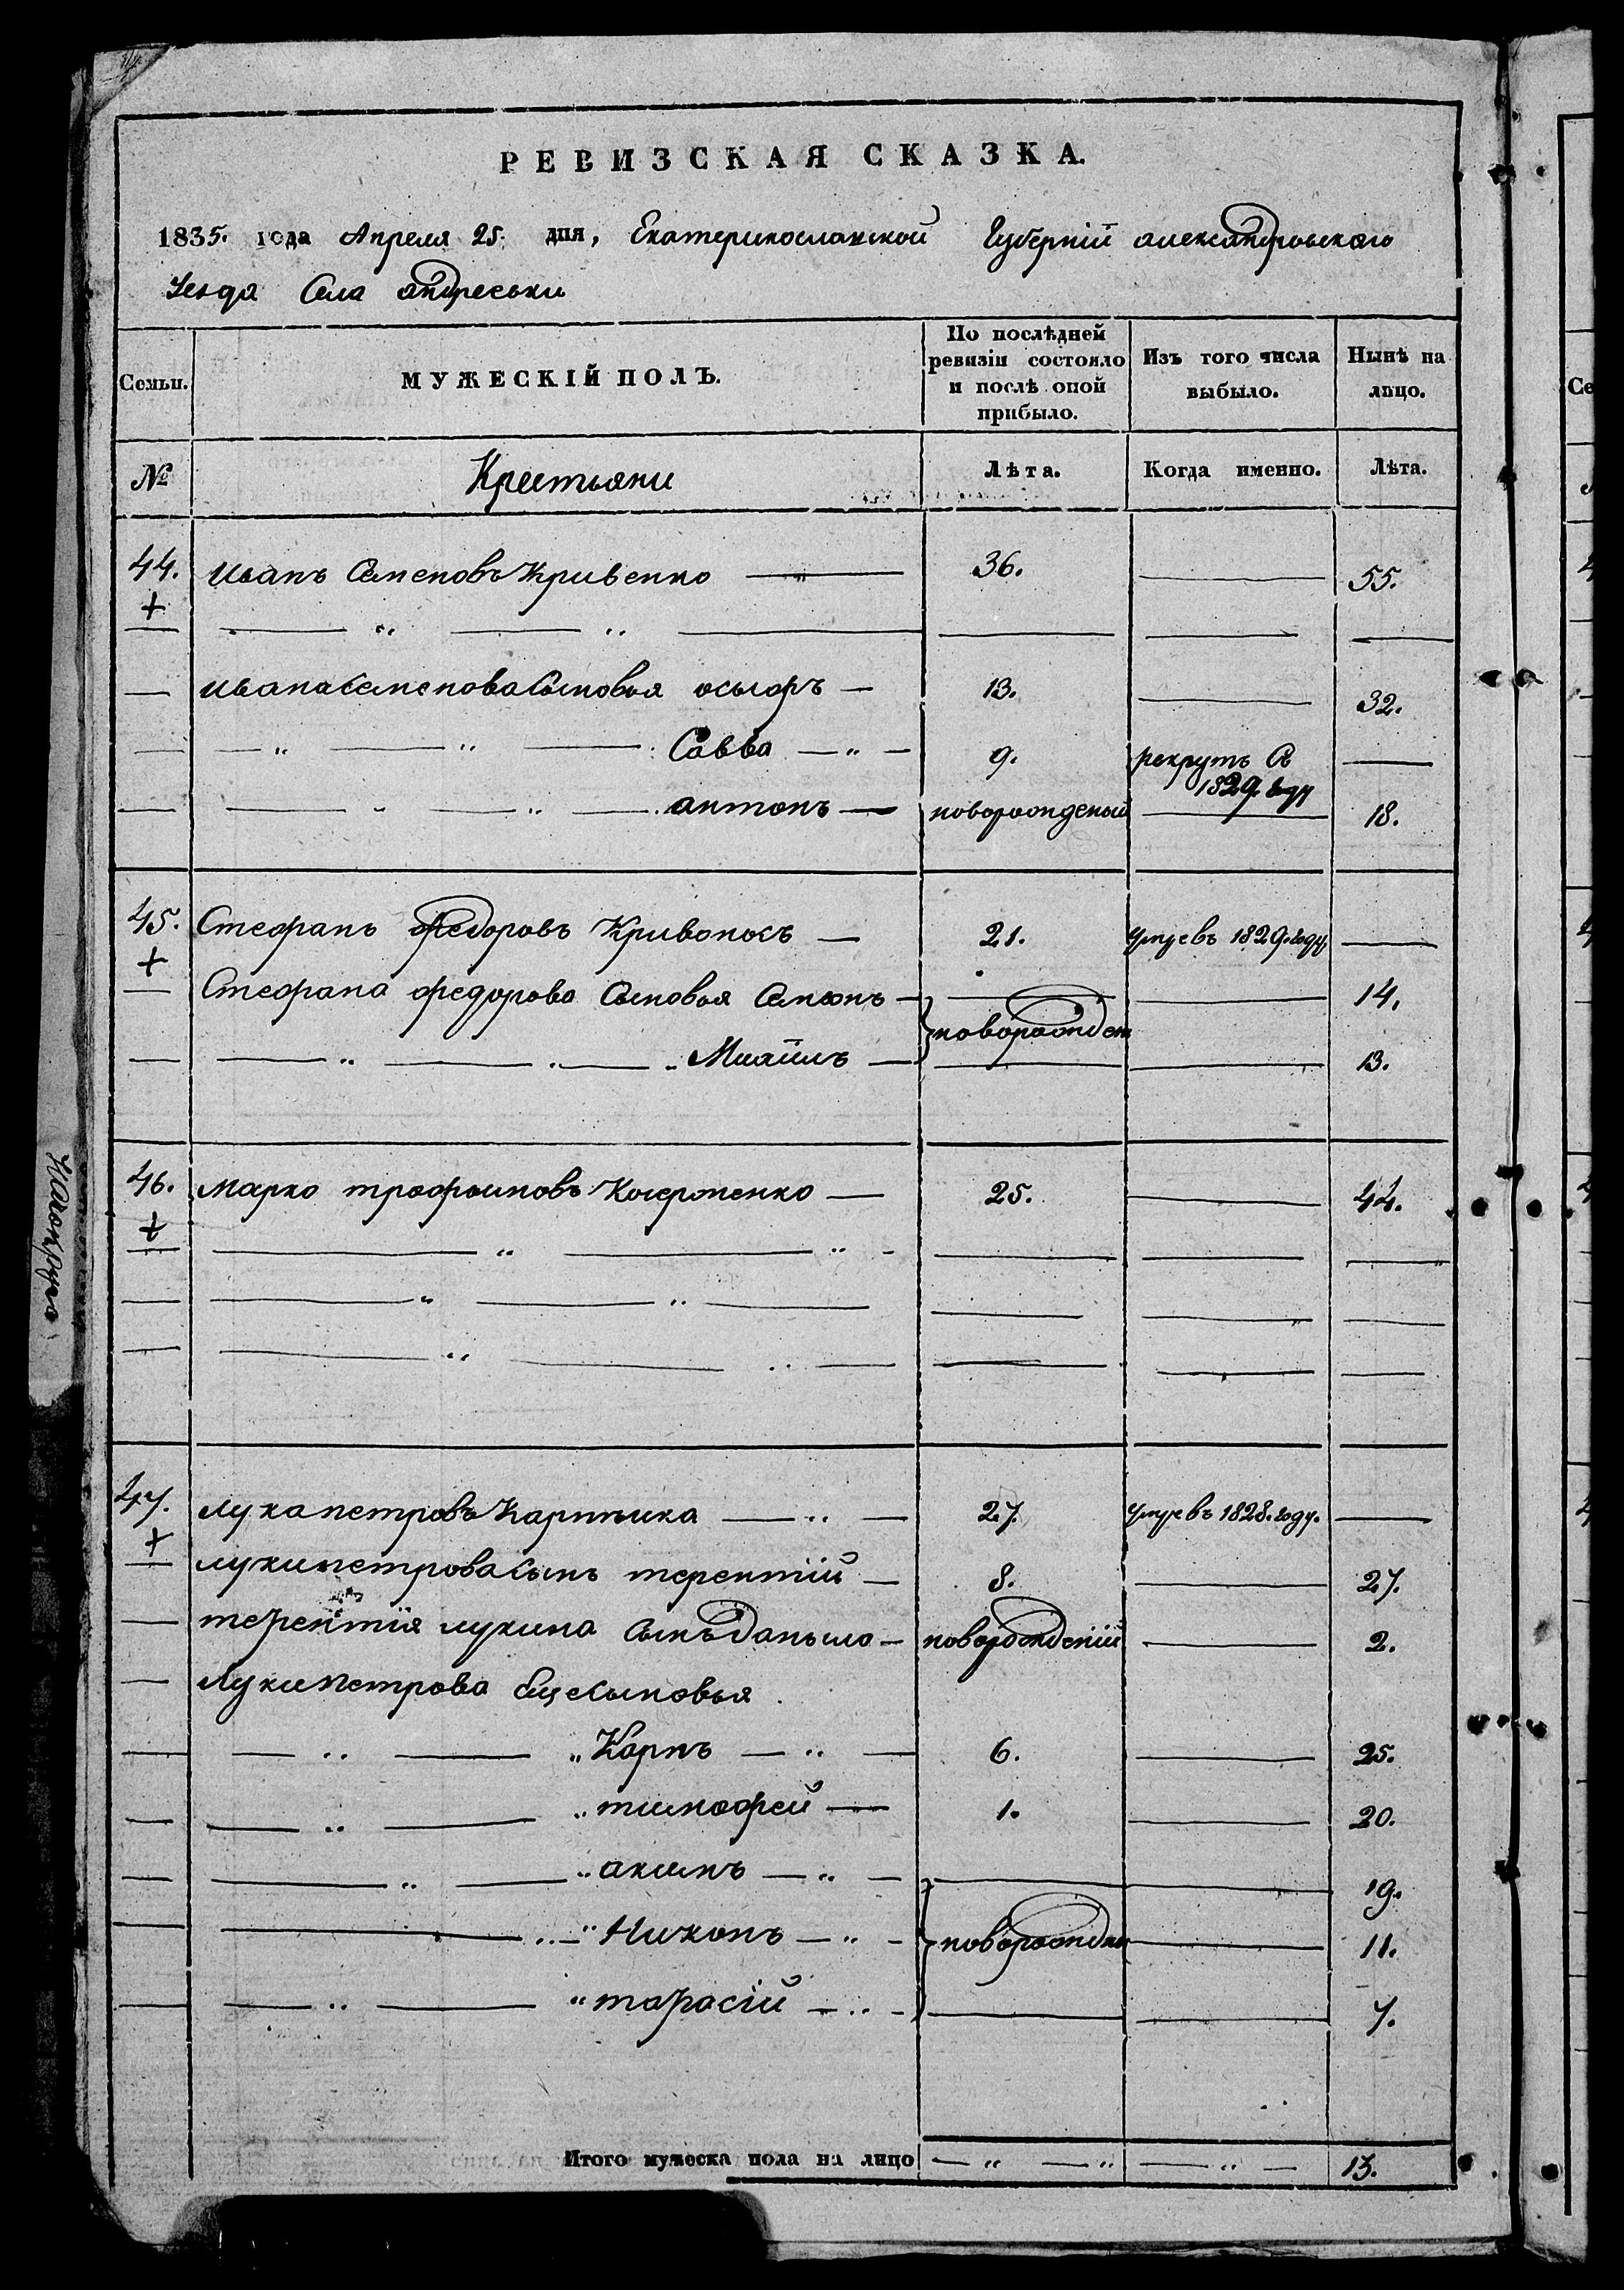 РЕВИЗСКАЯ СКАЗКА.
1835. года Апреля 25. дня, Екатеринославской Губерніи александровского
Уезда Села андреевки
Семьи. МУЖЕСКІЙ ПОЛЪ. По послѣдней ревизіи состояло и послѣ оной прибыло. Изъ того числа выбыло. Нынѣ на лицо.
№ Крестьяни Лѣта. Когда именно. Лѣта.
44. Иванъ Семеновъ Кривенко 36. 55.
Ивана Семенова Сыновья осыфръ 13. 32.
Савва 9. рекрутъ Въ 1829. году
антонъ новорожденый 18.
45. Стефанъ федоровъ Кривоносъ 21. умре въ 1829. году.
Стефана федорова Сыновья Семюнъ 14.
новорожден
Михаилъ 13.
46. Марко трофимовъ 25. 44.
47. Лука петровъ 27. умре въ 1828. году.
луки петрова Сынъ терентій 8. 27.
терентія лукина Сынъ данило новорожденій 2.
Луки петрова Еще Сыновья
Карпъ 6. 25.
тимофей 1. 20.
акимъ 19.
Никонъ новорожден 11.
тарасій 7.
Итого мужеска пола на лицо 13.